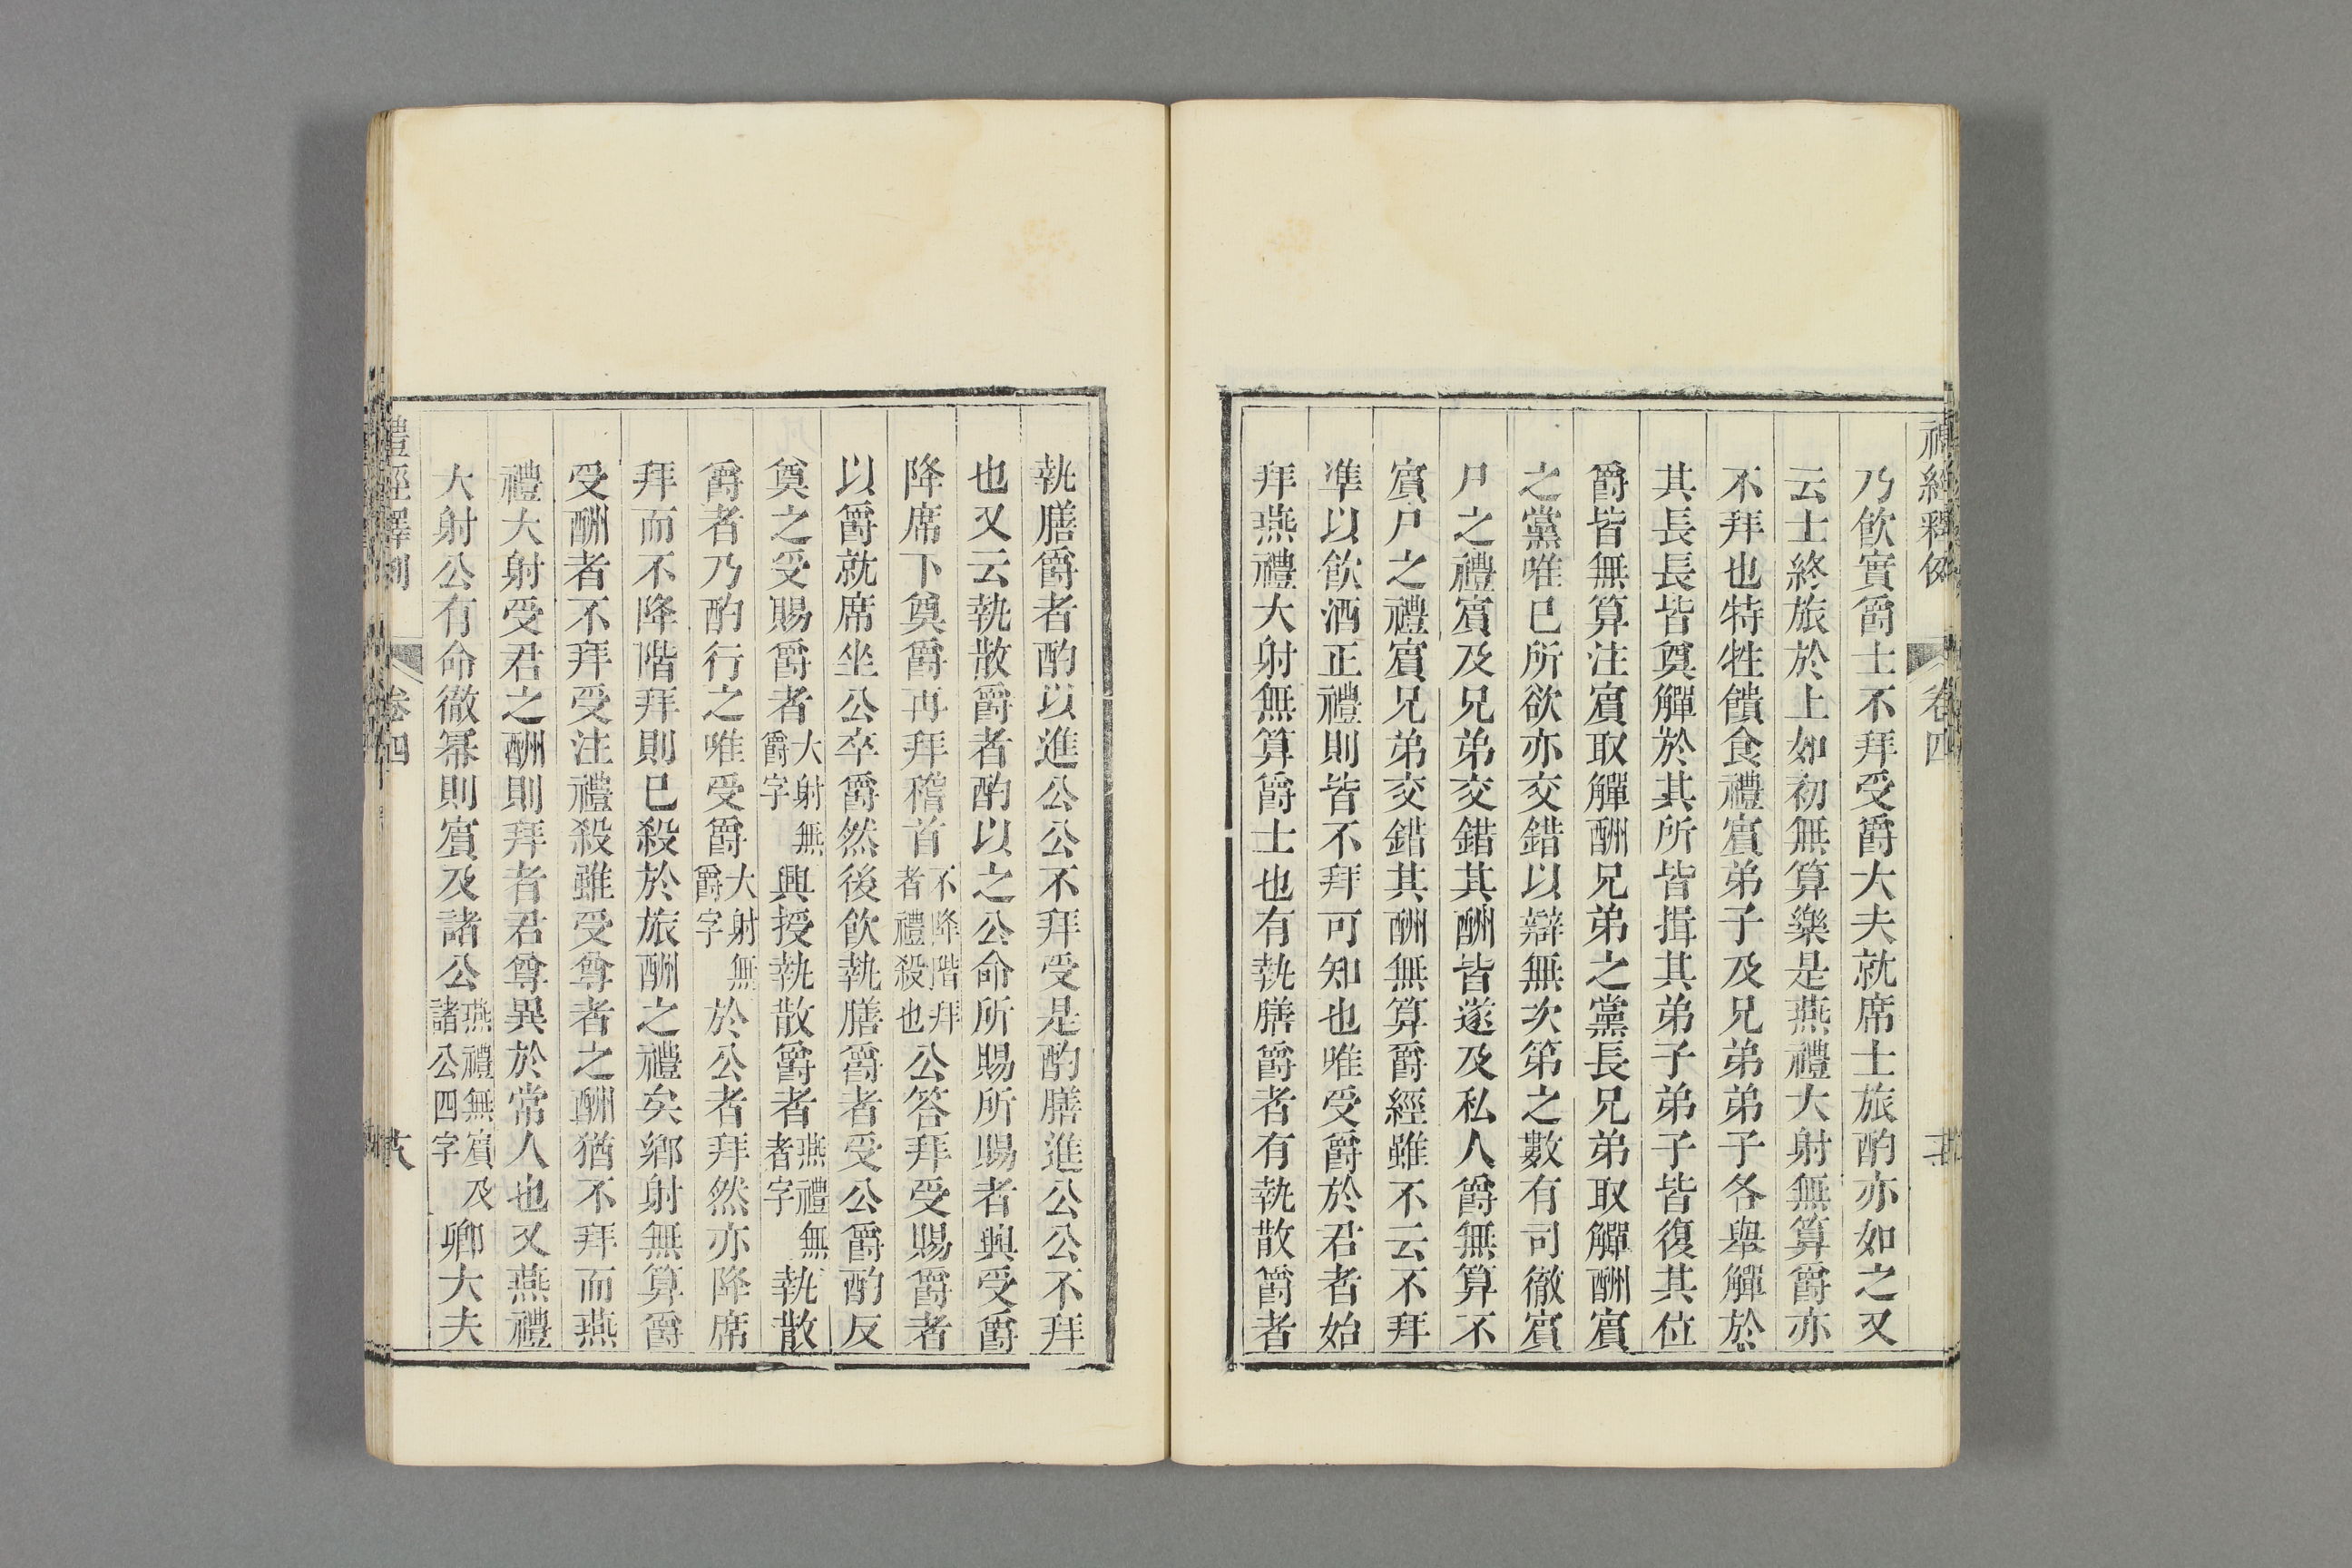 禮經釋例 卷四
乃飲實爵士不拜受爵大夫就席士旅酌亦如之又
云士終旅於上如初無算樂是燕禮大射無算爵亦
不拜也特牲饋食禮賔弟子及兄弟弟子各舉觶於
其長長皆奠觶於其所皆揖其弟子弟子皆復其位
爵皆無算注賔取觶酬兄弟之黨長兄弟取觶酬賔
之黨唯巳所欲亦交錯以辯無次第之數有司徹賔
尸之禮賔及兄弟交錯其酬皆遂及私人爵無算不
賔尸之禮賔兄弟交錯其酬無算爵經雖不云不拜
準以飲酒正禮則皆不拜可知也唯受爵於君者始
拜燕禮大射無算爵士也有執膳爵者有執散爵者
執膳爵者酌以進公公不拜受是酌膳進公公不拜
也又云執散爵者酌以之公命所賜所賜者興受爵
降席下奠爵再拜稽首不降階拜者禮殺也公答拜受賜爵者
以爵就席坐公卒爵然後飲執膳爵者受公爵酌反
奠之受賜爵者大射無爵字興授執散爵者燕禮無者字執散
爵者乃酌行之唯受爵大射無爵字於公者拜然亦降席
拜而不降階拜則巳殺於旅酬之禮矣鄉射無算爵
受酬者不拜受注禮殺雖受尊者之酬猶不拜而燕
禮大射受君之酬則拜者君尊異於常人也又燕禮
大射公有命徹冪則賔及諸公燕禮無賔及諸公四字卿大夫
禮經釋例 卷四